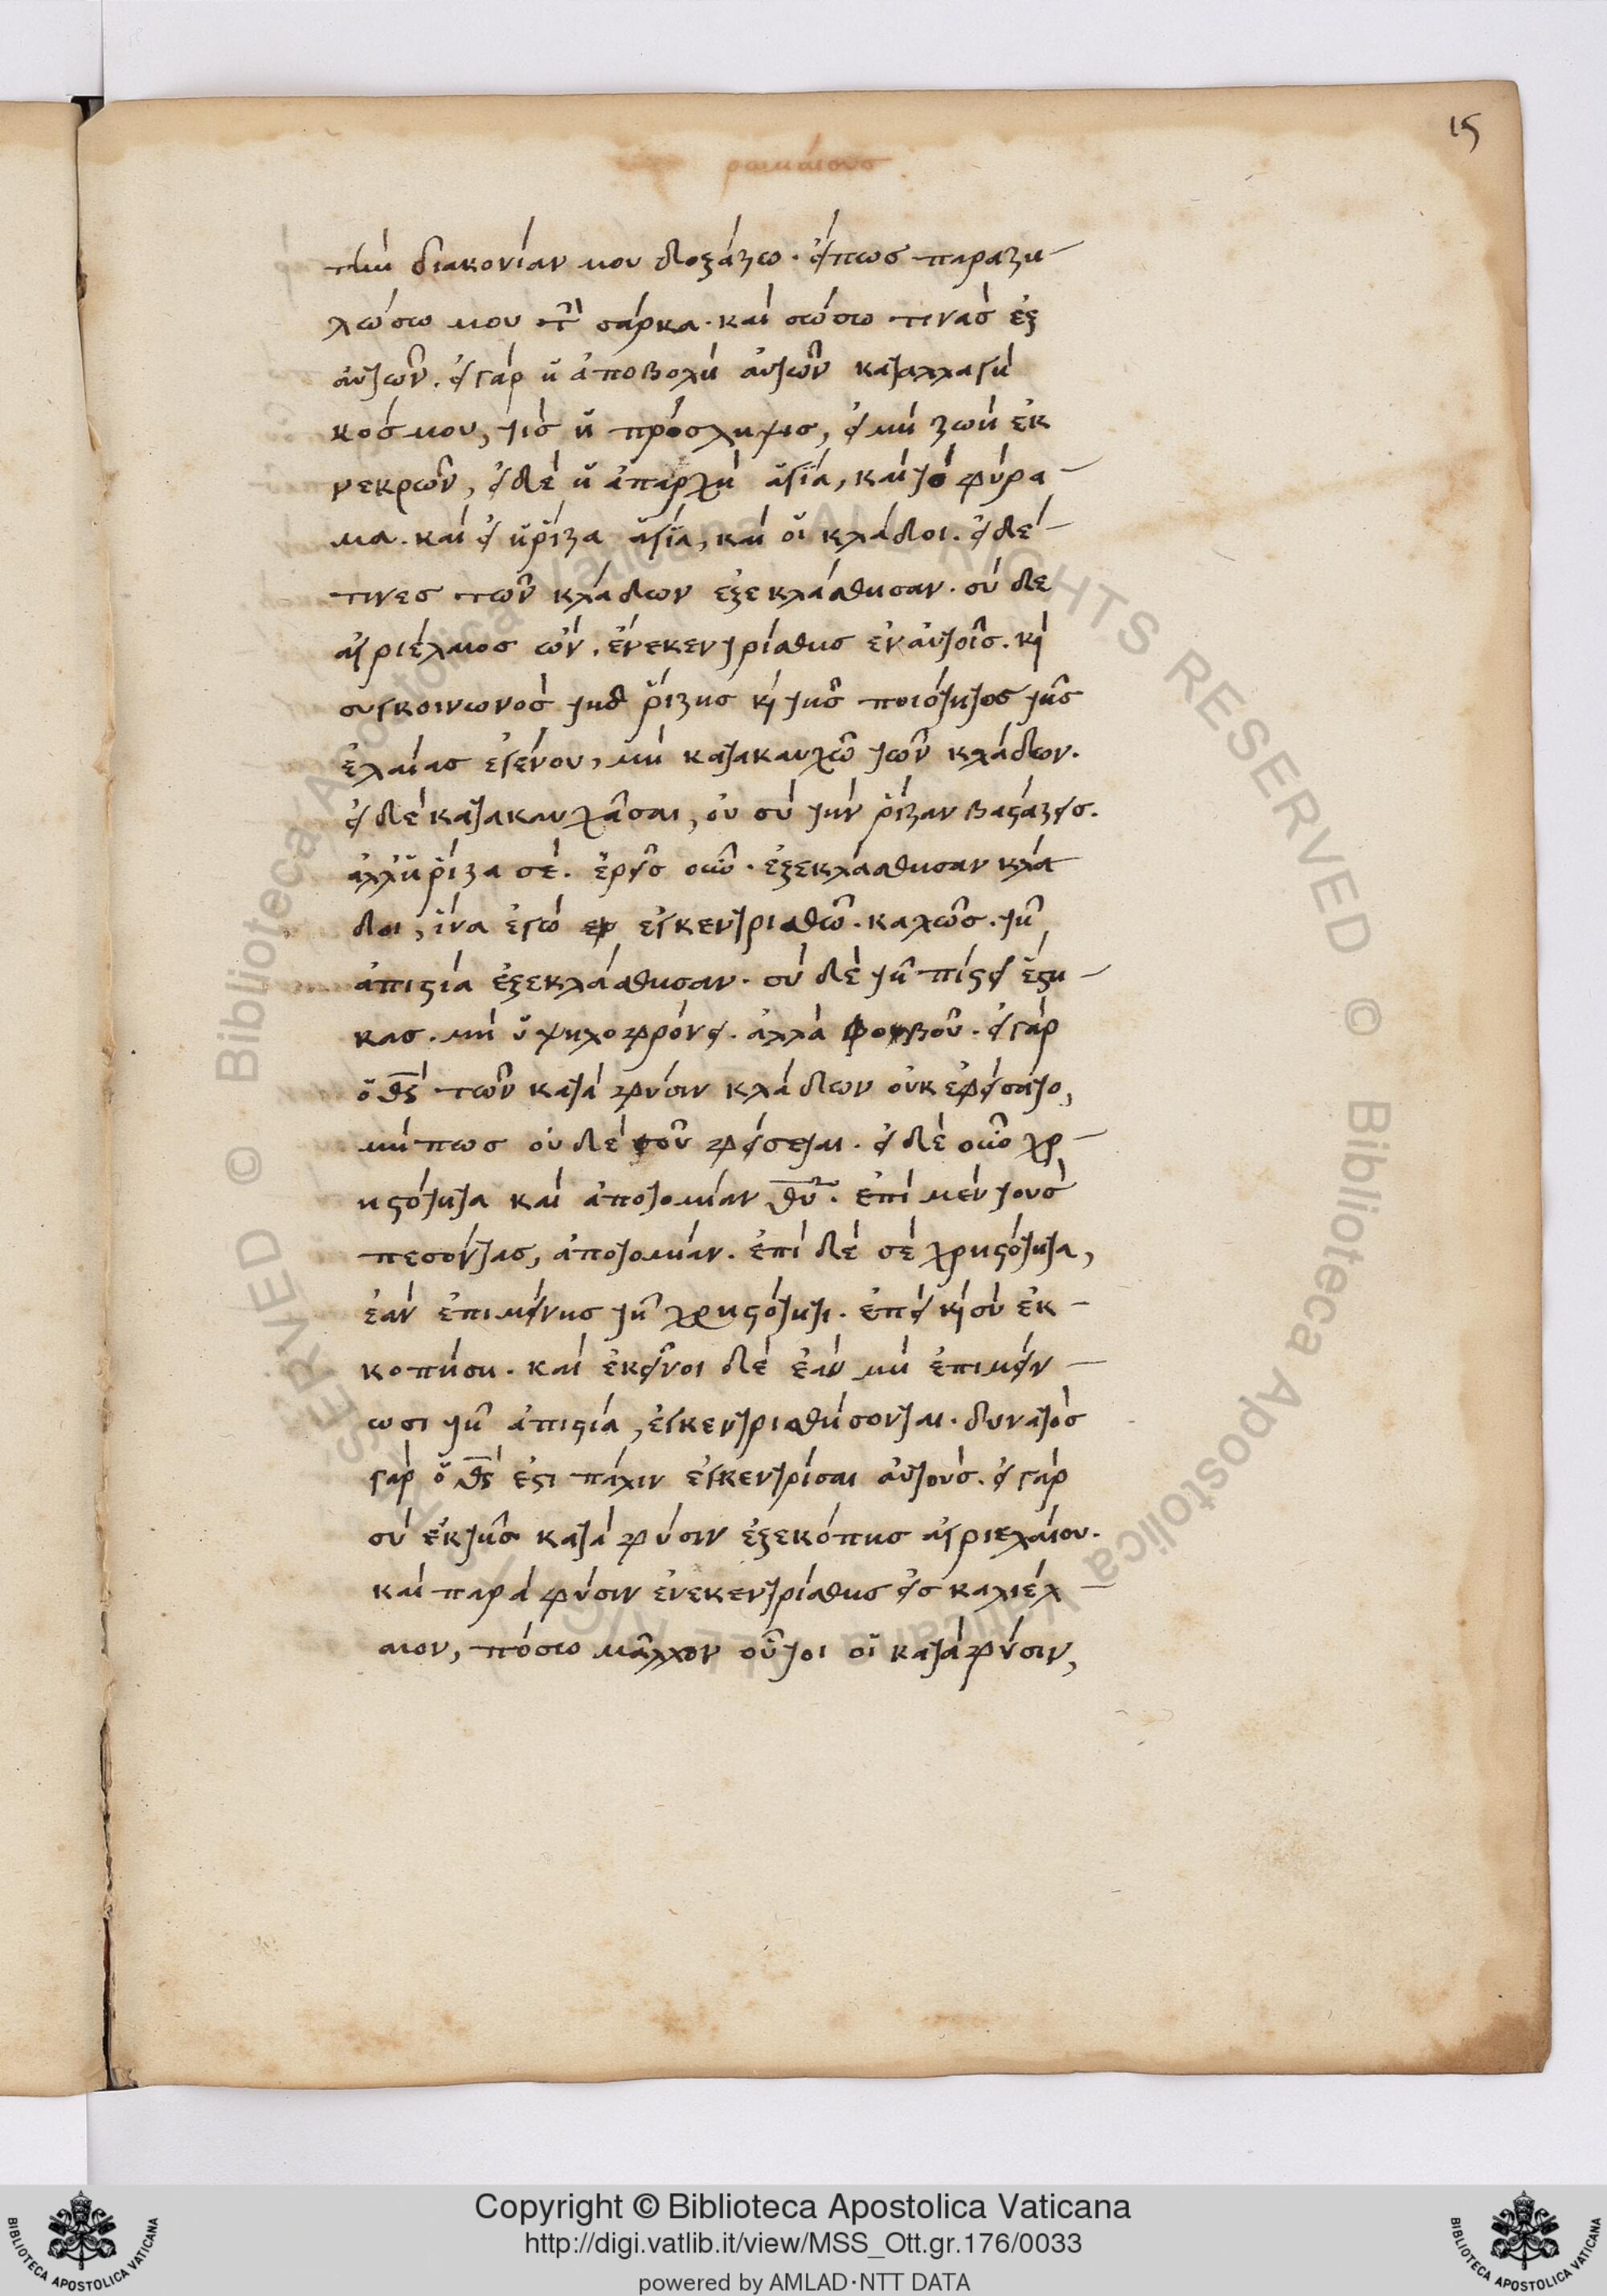 15
ρωμαίους
τὴν διακονίαν μου δοξάζω. εἴπως παραζη
λώσω μου τὴν σάρκα. καὶ σώσω τινὰς ἐξ
αὐτῶν. εἰ γὰρ ἡ ἀποβολὴ αὐτῶν καταλλαγὴ
κόσμου, τίς ἡ πρόσληψις, εἰ μὴ ζωὴ ἐκ
νεκρῶν, εἰ δὲ ἡ ἀπαρχὴ ἁγία, καὶ τὸ φύρα
μα. καὶ εἰ ἡ ῥίζα ἁγία, καὶ οἱ κλάδοι. εἰ δέ
τινες τῶν κλάδων ἐξεκλάσθησαν. σὺ δὲ
ἀγριέλαιος ὢν. ἐνεκεντρίσθης ἐν αὐτοῖς. κὶ
συγκοινωνὸς τῆς ῥίζης κὶ τῆς ποιότητος τῆς
ἐλαίας ἐγένου, μὴ κατακαυχῶ τῶν κλάδων.
εἰ δὲ κατακαυχᾶσαι, οὐ σὺ τὴν ῥίζαν βαστάζεις.
ἀλλ' ἡ ῥίζα σέ. ἐρεῖς οὖν. ἐξεκλάσθησαν κλά
δοι, ἵνα ἐγὼ ἐγκεντρισθῶ. καλῶς. τῇ
ἀπιστία ἐξεκλάσθησαν. σὺ δὲ τῇ πίστει ἕστη
κας. μὴ ὑψηλοφρόνει. ἀλλὰ φοβοῦ. εἰ γὰρ
ὁ θς τῶν κατὰ φύσιν κλάδων οὐκ ἐφείσατο,
μήπως οὐδὲ σοῦ φείσεται. εἰ δὲ οὖν χρ
ηστότητα καὶ ἀποτομίαν θυ. ἐπὶ μὲν τοὺς
πεσόντας, ἀποτομίαν. ἐπὶ δὲ σὲ χρηστότητα,
ἐὰν ἐπιμείνης τῇ χρηστότητι. ἐπεὶ κὶ σὺ ἐκ
κοπήση. καὶ ἐκεῖνοι δὲ ἐὰν μὴ ἐπιμείν
ωσι τῇ ἀπιστία, ἐγκεντρισθήσονται. δυνατὸς
γὰρ ὁ θς ἐστι πάλιν ἐγκεντρίσαι αὐτούς. εἰ γὰρ
σὺ ἐκ τῆς κατὰ φύσιν ἐξεκόπης ἀγριελαίου.
καὶ παρὰ φύσιν ἐνεκεντρίσθης εἰς καλιέλ
αιον, πόσω μᾶλλον οὗτοι οἱ κατὰ φύσιν,
Copyright © Biblioteca Apostolica Vaticana
http://digi.vatlib.it/view/MSS_Ott.gr.176/0033
powered by AMLAD·NTT DATA
BIBLIOTECA APOSTOLICA VATICANA
BIBLIOTECA APOSTOLICA VATICANA
© Biblioteca Apostolica Vaticana ALL RIGHTS RESERVED
© Biblioteca Apostolica Vaticana ALL RIGHTS RESERVED